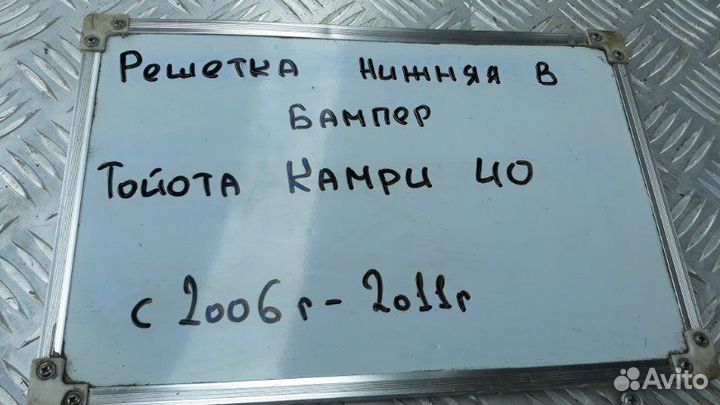 Решетка нижняя в
бампер
Тойота Камри 40
с 2006г - 2011г
Avito